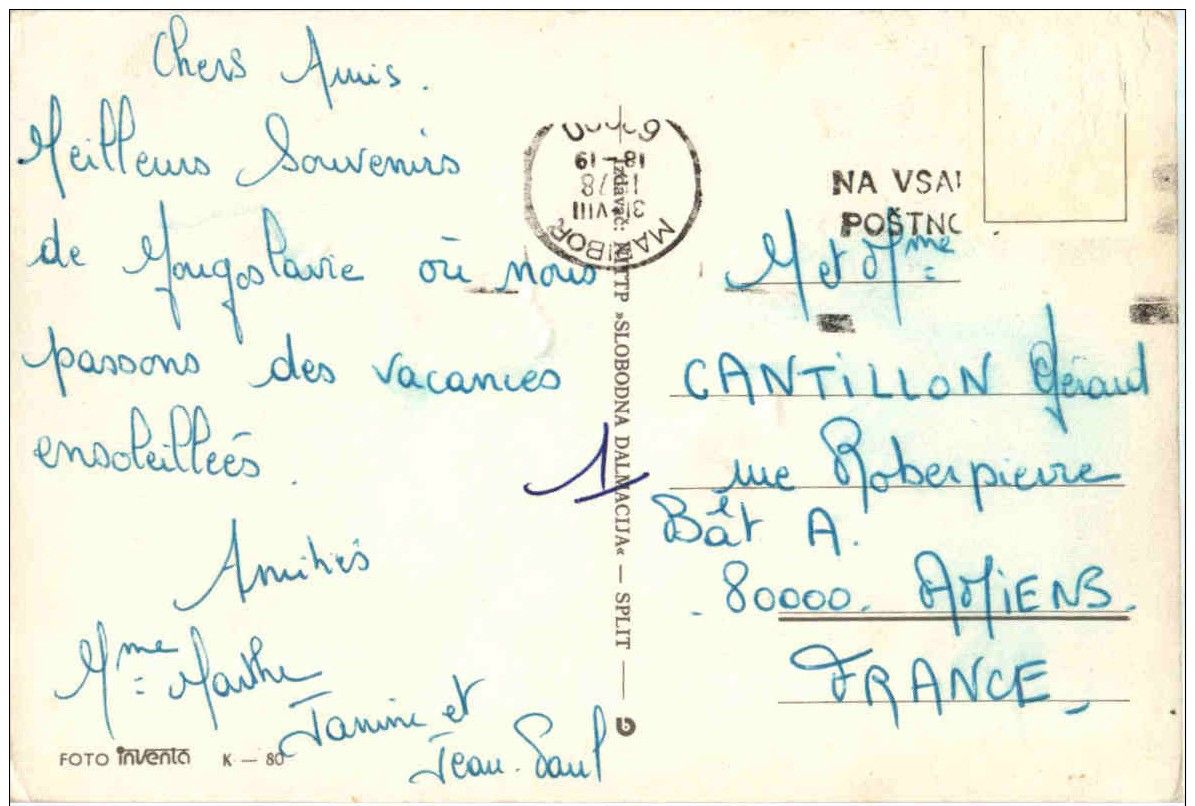 Chers Amis.
Meilleurs Souvenirs
de Yougoslavie où nous
passons des vacances
ensoleillées.
Amitiés
Mme Marthe
Janine et
Jean-Paul
FOTO inventa K — 80
MARIBOR
31-VIII
1978
18-19
Izdavač: NITTP »SLOBODNA DALMACIJA« — SPLIT —
1
NA VSA
POŠTNO
M et Mme
CANTILLON Gérard
rue Roberpierre
Bât A.
80000. AMIENS.
FRANCE